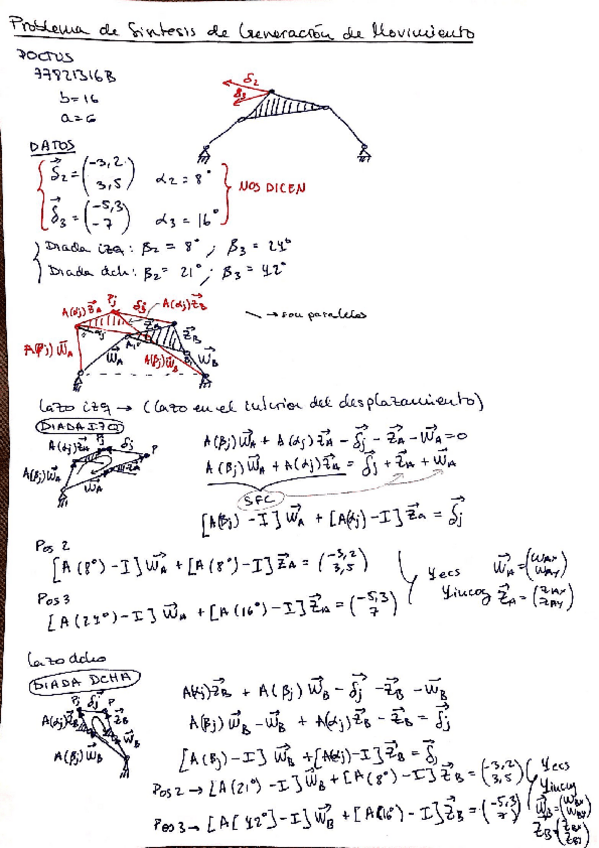 Problema de Síntesis de Generación de Movimiento
POCTUS
77821316B
b=16
a=6
δ2
β3
DATOS
δ2 = (-3,2 3,5) α2 = 8°
δ3 = (-5,3 -7) α3 = 16°
NOS DICEN
Diada izq: β2 = 8° ; β3 = 24°
Diada dch: β2 = 21° ; β3 = 42°
A(αj) ZA Pj δj A(αj) ZB
→ son paralelos
A(βj) WA WA A(βj) WB WB
Lazo izq → (lazo en el interior del desplazamiento)
DIADA IZQ
A(αj) ZA Pj δj P
A(βj) WA ZA WA
A(βj) WA + A(αj) ZA - δj - ZA - WA = 0
A(βj) WA + A(αj) ZA = δj + ZA + WA
SFC
[A(βj) - I] WA + [A(αj) - I] ZA = δj
Pos 2
[A(8°) - I] WA + [A(8°) - I] ZA = (-3,2 3,5)
Pos 3
[A(24°) - I] WA + [A(16°) - I] ZA = (-5,3 7)
4ecs
4incog
WA = (WAX WAY)
ZA = (ZAX ZAY)
Lazo dcho
DIADA DCHA
Pj δj P
A(αj) ZB ZB WB
A(βj) WB
A(αj) ZB + A(βj) WB - δj - ZB - WB
A(βj) WB - WB + A(αj) ZB - ZB = δj
[A(βj) - I] WB + [A(αj) - I] ZB = δj
Pos 2 → [A(21°) - I] WB + [A(8°) - I] ZB = (-3,2 3,5)
Pos 3 → [A(42°) - I] WB + [A(16°) - I] ZB = (-5,3 7)
4ecs
4incog
WB = (WBX WBY)
ZB = (ZBX ZBY)